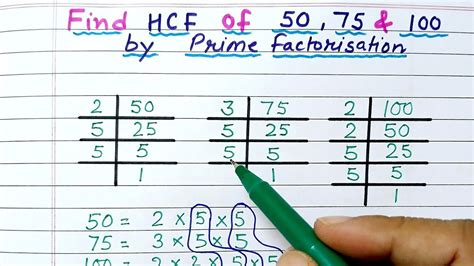 Find HCF of 50, 75 & 100
by Prime factorisation
2 50 3 75 2 100
5 25 5 25 2 50
5 5 5 5 5 25
1 1 5 5
1
50 = 2 × 5 × 5
75 = 3 × 5 × 5
100 = 2 × 2 × 5 × 5